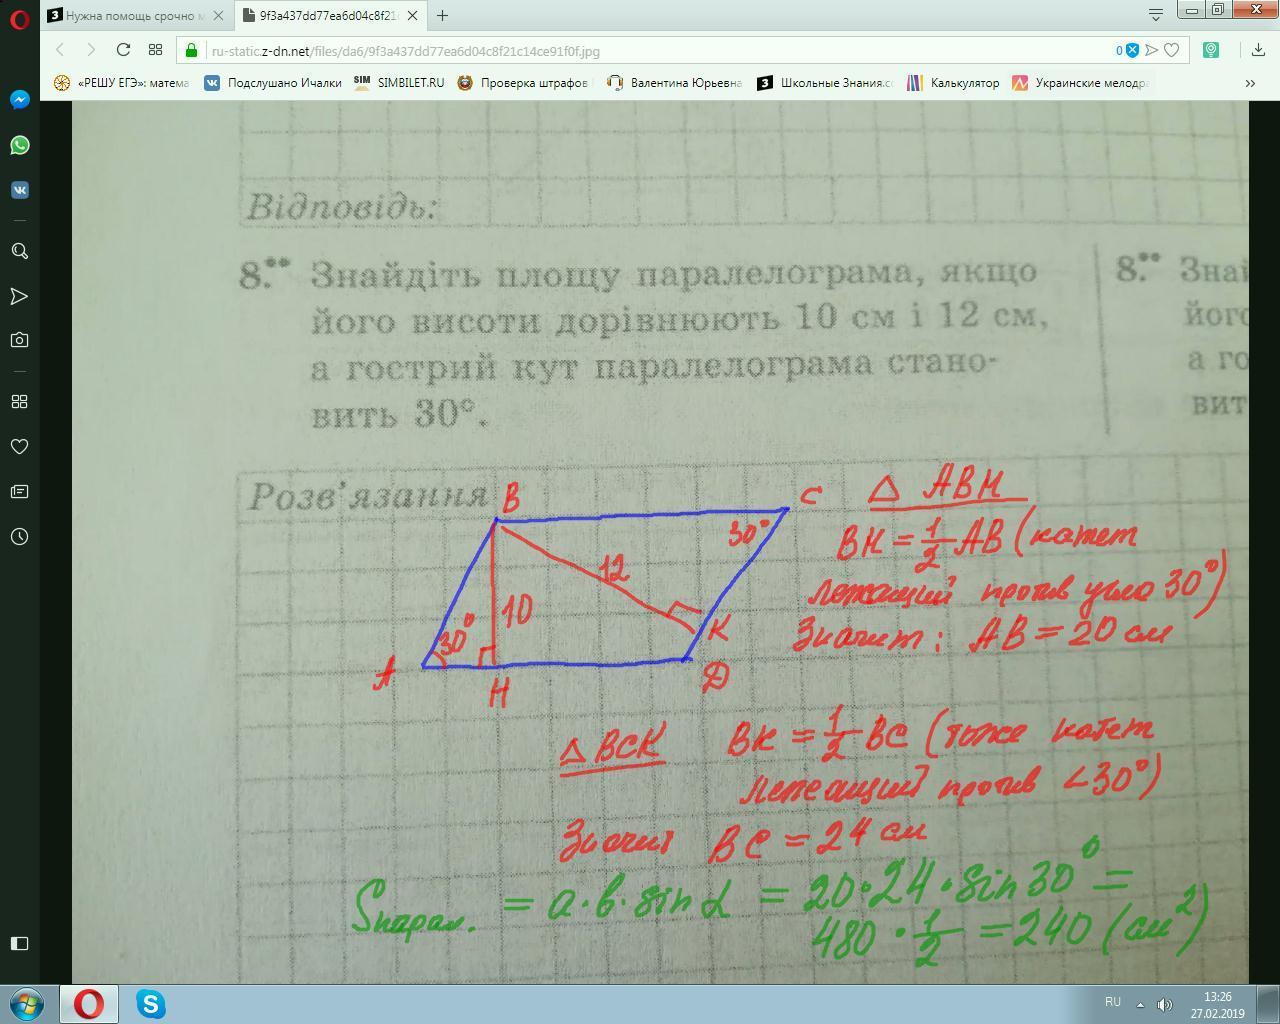 Нужна помощь срочно м
9f3a437dd77ea6d04c8f21c
ru-static.z-dn.net/files/da6/9f3a437dd77ea6d04c8f21c14ce91f0f.jpg
0
«РЕШУ ЕГЭ»: матема
Подслушано Ичалки
SIMBILET.RU
Проверка штрафов
Валентина Юрьевна
Школьные Знания.co
Калькулятор
Украинские мелодра
Відповідь:
8.•• Знайдіть площу паралелограма, якщо
його висоти дорівнюють 10 см і 12 см,
а гострий кут паралелограма стано-
вить 30°.
8.•• Зна
його
а го
вит
Розв'язання
B
C
30°
12
10
30°
K
A
H
D
△ ABH
BH = 1/2 AB (катет
лежащий против угла 30°)
Значит: AB = 20 см
△ BCK BK = 1/2 BC (тоже катет
лежащий против <30°)
Значит BC = 24 см
Sпарал. = a·b·sin α = 20·24·sin 30° =
480 · 1/2 = 240 (см²)
RU
13:26
27.02.2019